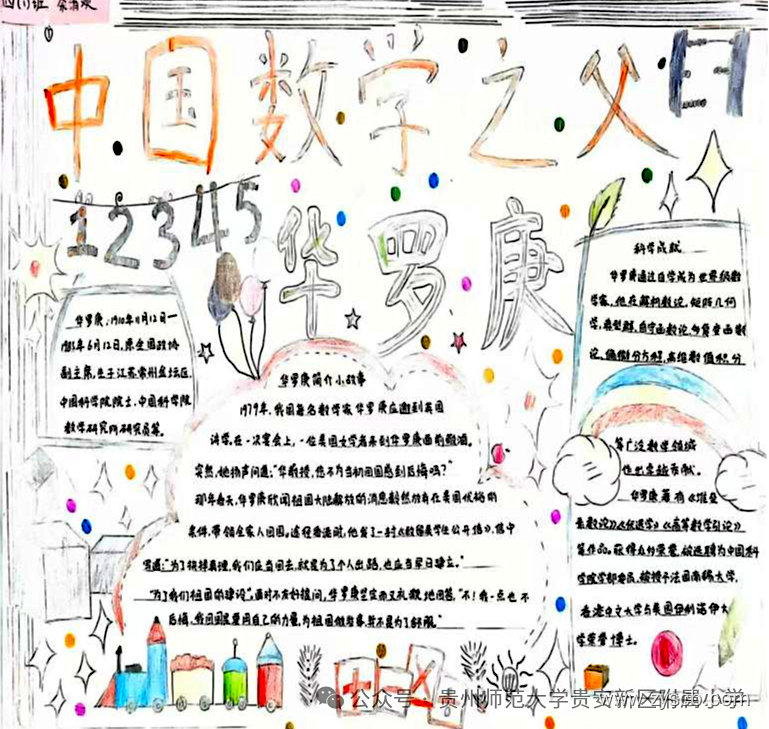 中国数学之父
12345
华罗庚
华罗庚:1910年11月12日一
1985年6月12日,原全国政协
副主席,生于江苏常州金坛区,
中国科学院院士,中国科学院
数学研究所研究员等。
华罗庚简介小故事
1979年,我国著名数学家华罗庚应邀到英国
讲学,在一次宴会上,一位英国女学者来到华罗庚面前敬酒。
突然,她扬声问道:"华教授,您不为当初回国感到后悔吗?"
那年春天,华罗庚欣闻祖国大陆解放的消息毅然放弃在美国优裕的
条件,带领全家人回国。途经香港时,他写了一封《致留美学生公开信》,信中
写道:"为了抉择真理,我们应当回去,就是为了个人出路,也应当早日建立。"
"为了我们祖国的建设"。面对不友好提问,华罗庚坚定而又礼貌地回答,"不!我一点也不
后悔,我回国是要用自己的力量,为祖国做些事,并不是为了舒服。"
科学成就
华罗庚通过自学成为世界级数
学家,他在解析数论、矩阵几何
学、典型群、自守函数论、多复变函数
论、偏微分方程、高维数值积分
等广泛数学领域
作出卓越贡献。
华罗庚著有《堆垒
素数论》《优选学》《高等数学引论》
等作品。获得
被选聘为中国科
学院学部委员,被授予法国南锡大学,
香港中文大学与美国伊利诺伊大
学荣誉博士。
公众号·贵州师范大学贵安新区附属小学